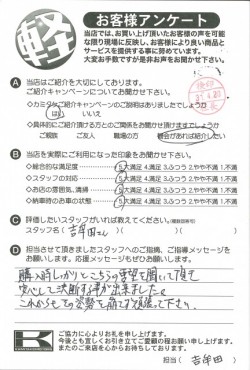 軽
お客様アンケート
当店では、お買い上げ頂いたお客様の声を可能
な限り現場に反映し、お客様により良い商品と
サービスを提供する事に努めています。
大変お手数ですが是非お声をお聞かせ下さい。
A 当店はご紹介を大切にしております。
ご紹介キャンペーンについてお聞かせ下さい。
◇カミタケご紹介キャンペーンのご説明はありましたでしょうか
はい いいえ
◇具体的にご紹介頂ける方とのご関係をお聞かせ頂けますでしょうか
ご親族 ご友人 職場の方 機会があれば紹介したい
B 当店を実際にご利用になった印象をお聞かせ下さい。
◇総合的な満足度 5.大満足 4.満足 3.ふつう 2.やや不満 1.不満
◇スタッフの対応 5.大満足 4.満足 3.ふつう 2.やや不満 1.不満
◇お店の雰囲気、清掃 5.大満足 4.満足 3.ふつう 2.やや不満 1.不満
◇納車時のお車の状態 5.大満足 4.満足 3.ふつう 2.やや不満 1.不満
C 評価したいスタッフがいれば教えてください。(複数回答可)
スタッフ名( 吉牟田さん )
D 担当させて頂きましたスタッフへのご指摘、ご指導メッセージを
お願いします。応援メッセージもぜひお願いします。
購入時しっかりとこちらの要望を聞いて頂き
安心して決断する事が出来ました。
これからもその姿勢を崩さず頑張って下さい。
ご協力に心よりお礼を申し上げます。
今後とも宜しくお引き立てご愛顧の程お願い申し上げます。
またのご来店を心からお待ちしております。
担当( 吉牟田 )